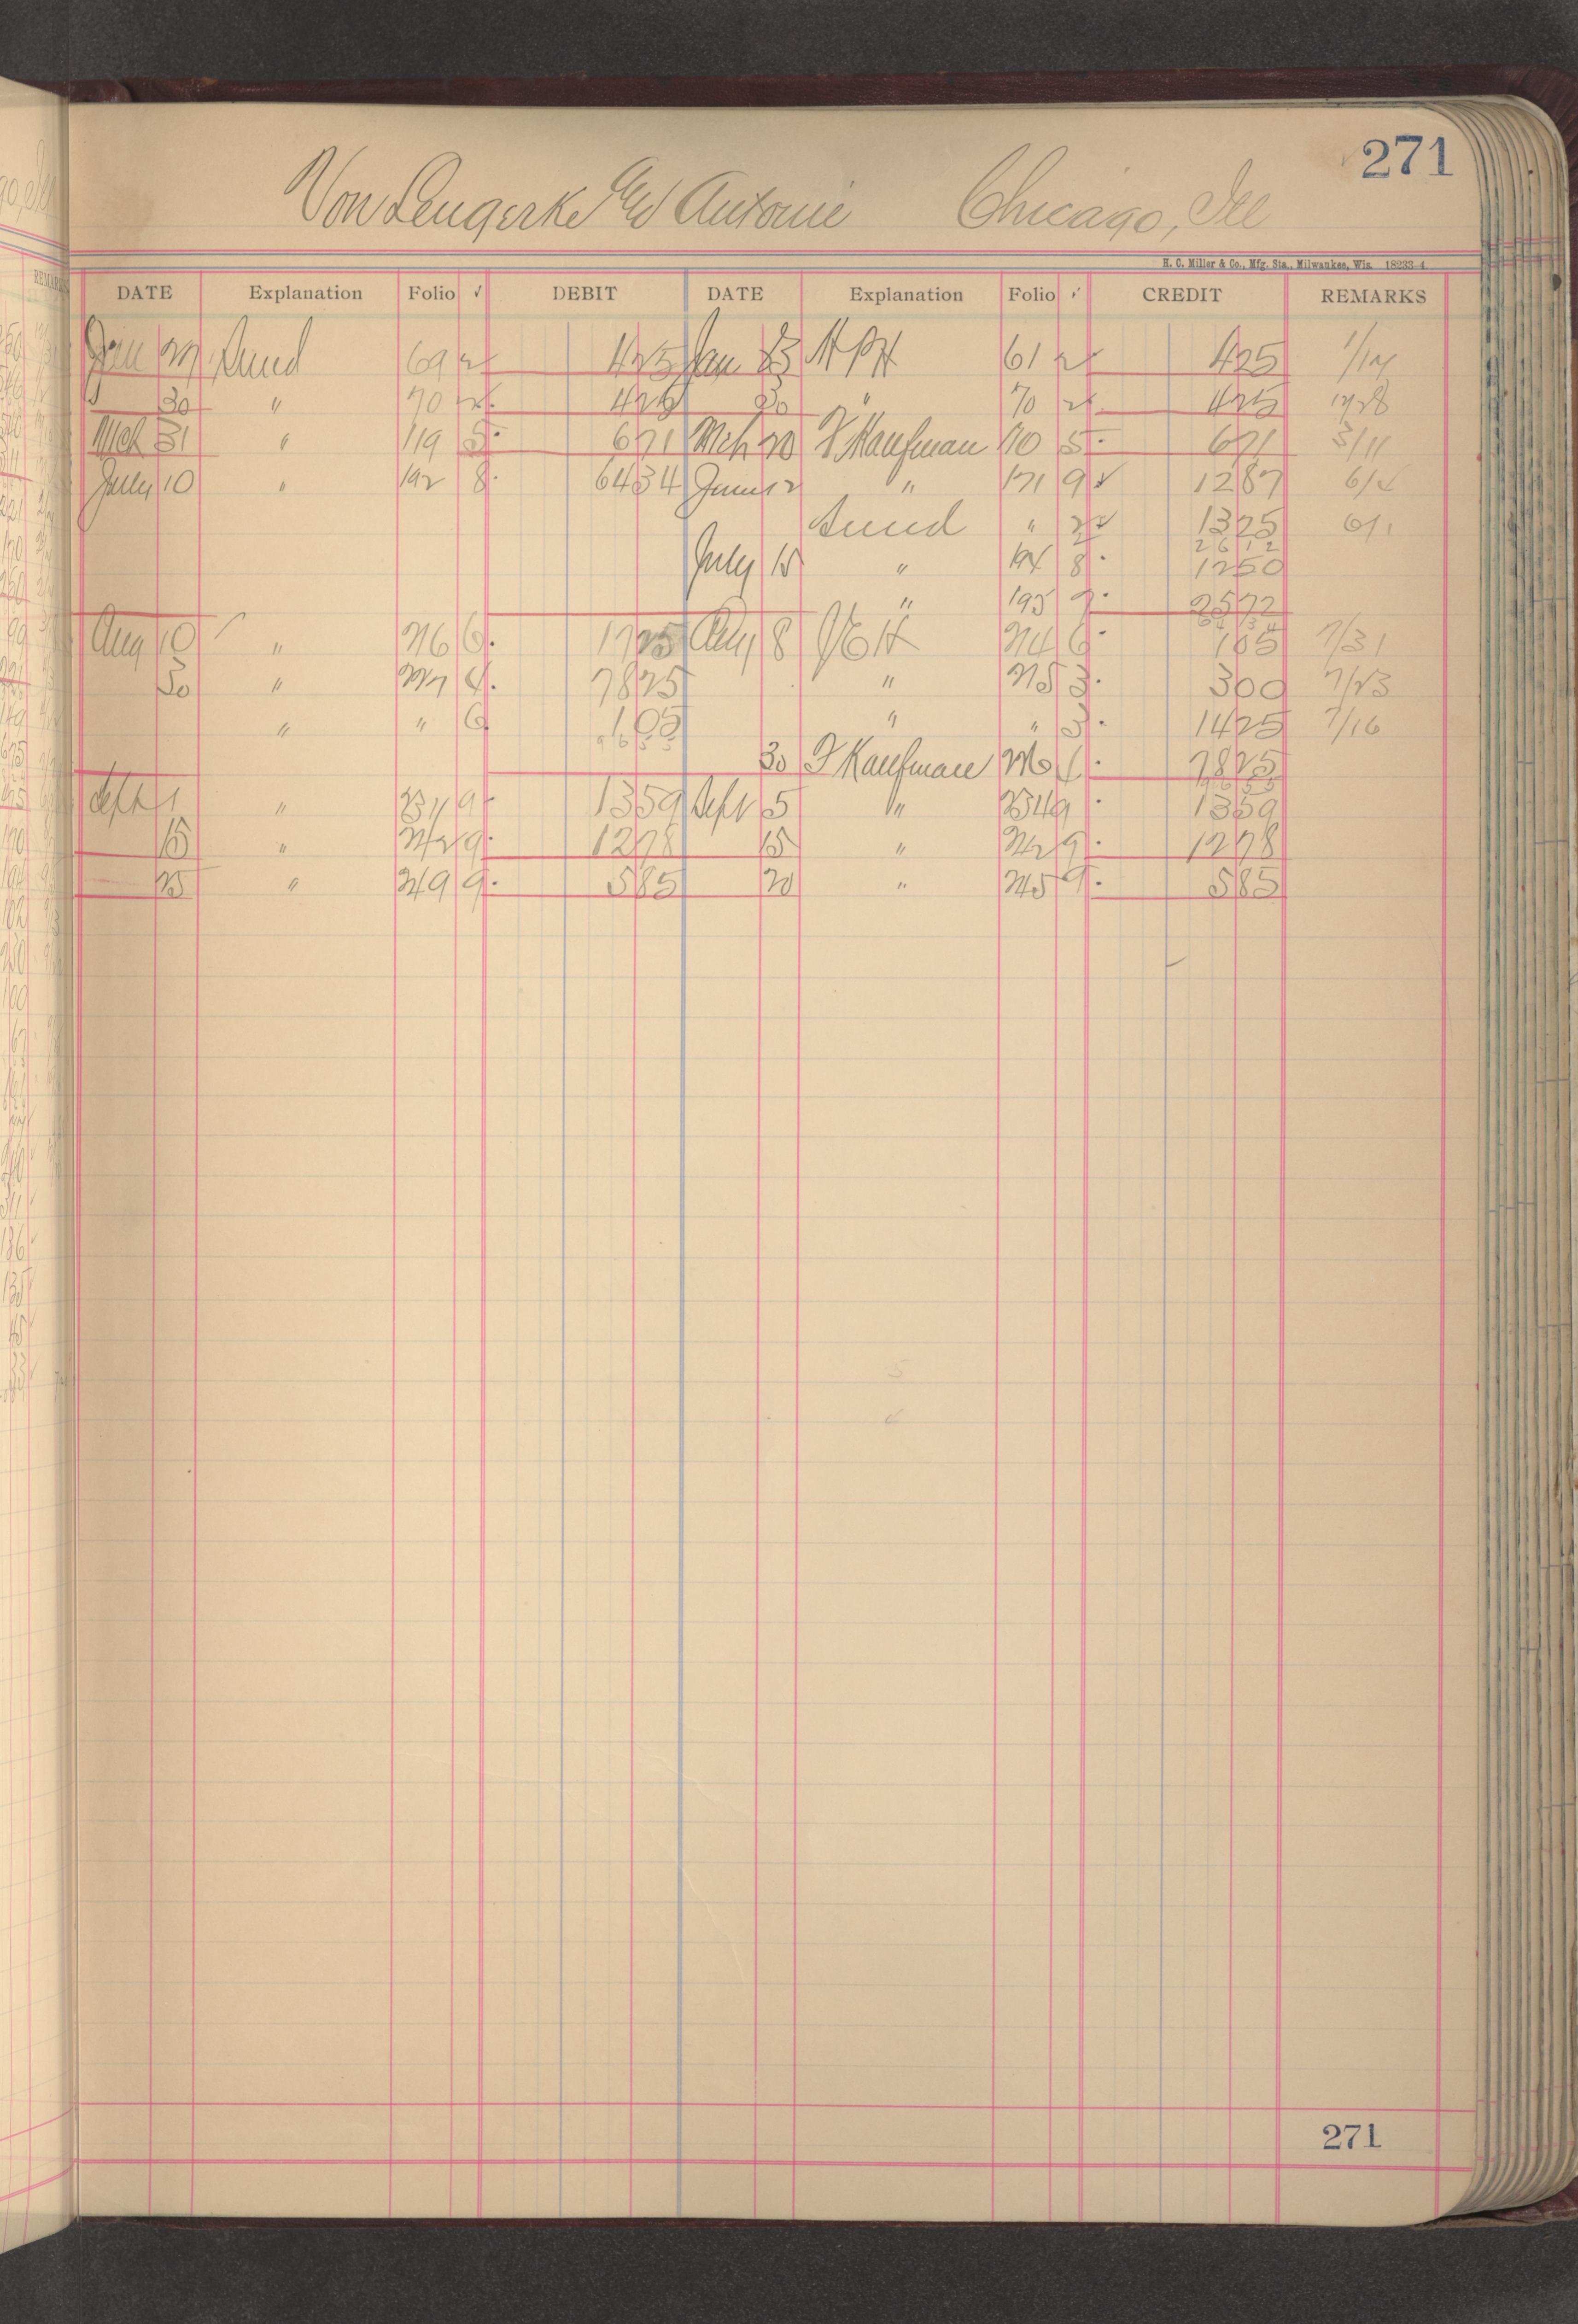 271
Von Lengerke and Antoine Chicago, Ill
H. C. Miller & Co., Mfg. Sta., Milwaukee, Wis. 18233-4
DATE Explanation Folio ✓ DEBIT DATE Explanation Folio ✓ CREDIT REMARKS
Jan 27 Sund 69 2 425 Jan 23 61 2 425 1/14
30 " 70 2 425 30 " 70 2 425 1/28
Mch 31 " 119 5 671 Mch 20 F Kaufman 110 5 671 3/11
July 10 " 192 8 6434 June 12 " 171 9 1287 6/4
Sund " 2 1325 6/1
2612
July 15 " 194 8 1250
" 195 7 2572
Aug 10 " 216 6 1725 Aug 8 214 6 165 7/31
30 " 227 4 7825 " 215 3 300 7/23
" " 6 165 " " 3 1425 7/16
30 F Kaufman 7825
Sept 1 " 9 1359 Sept 5 " 234 9 1359
15 " 242 9 1278 15 " 242 9 1278
25 " 249 9 585 20 " 245 9 585
271